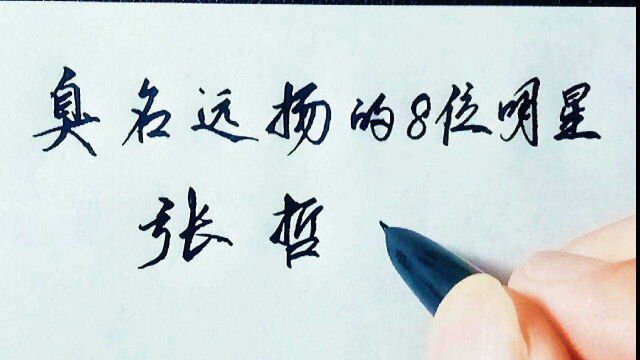 臭名远扬的8位明星
张哲